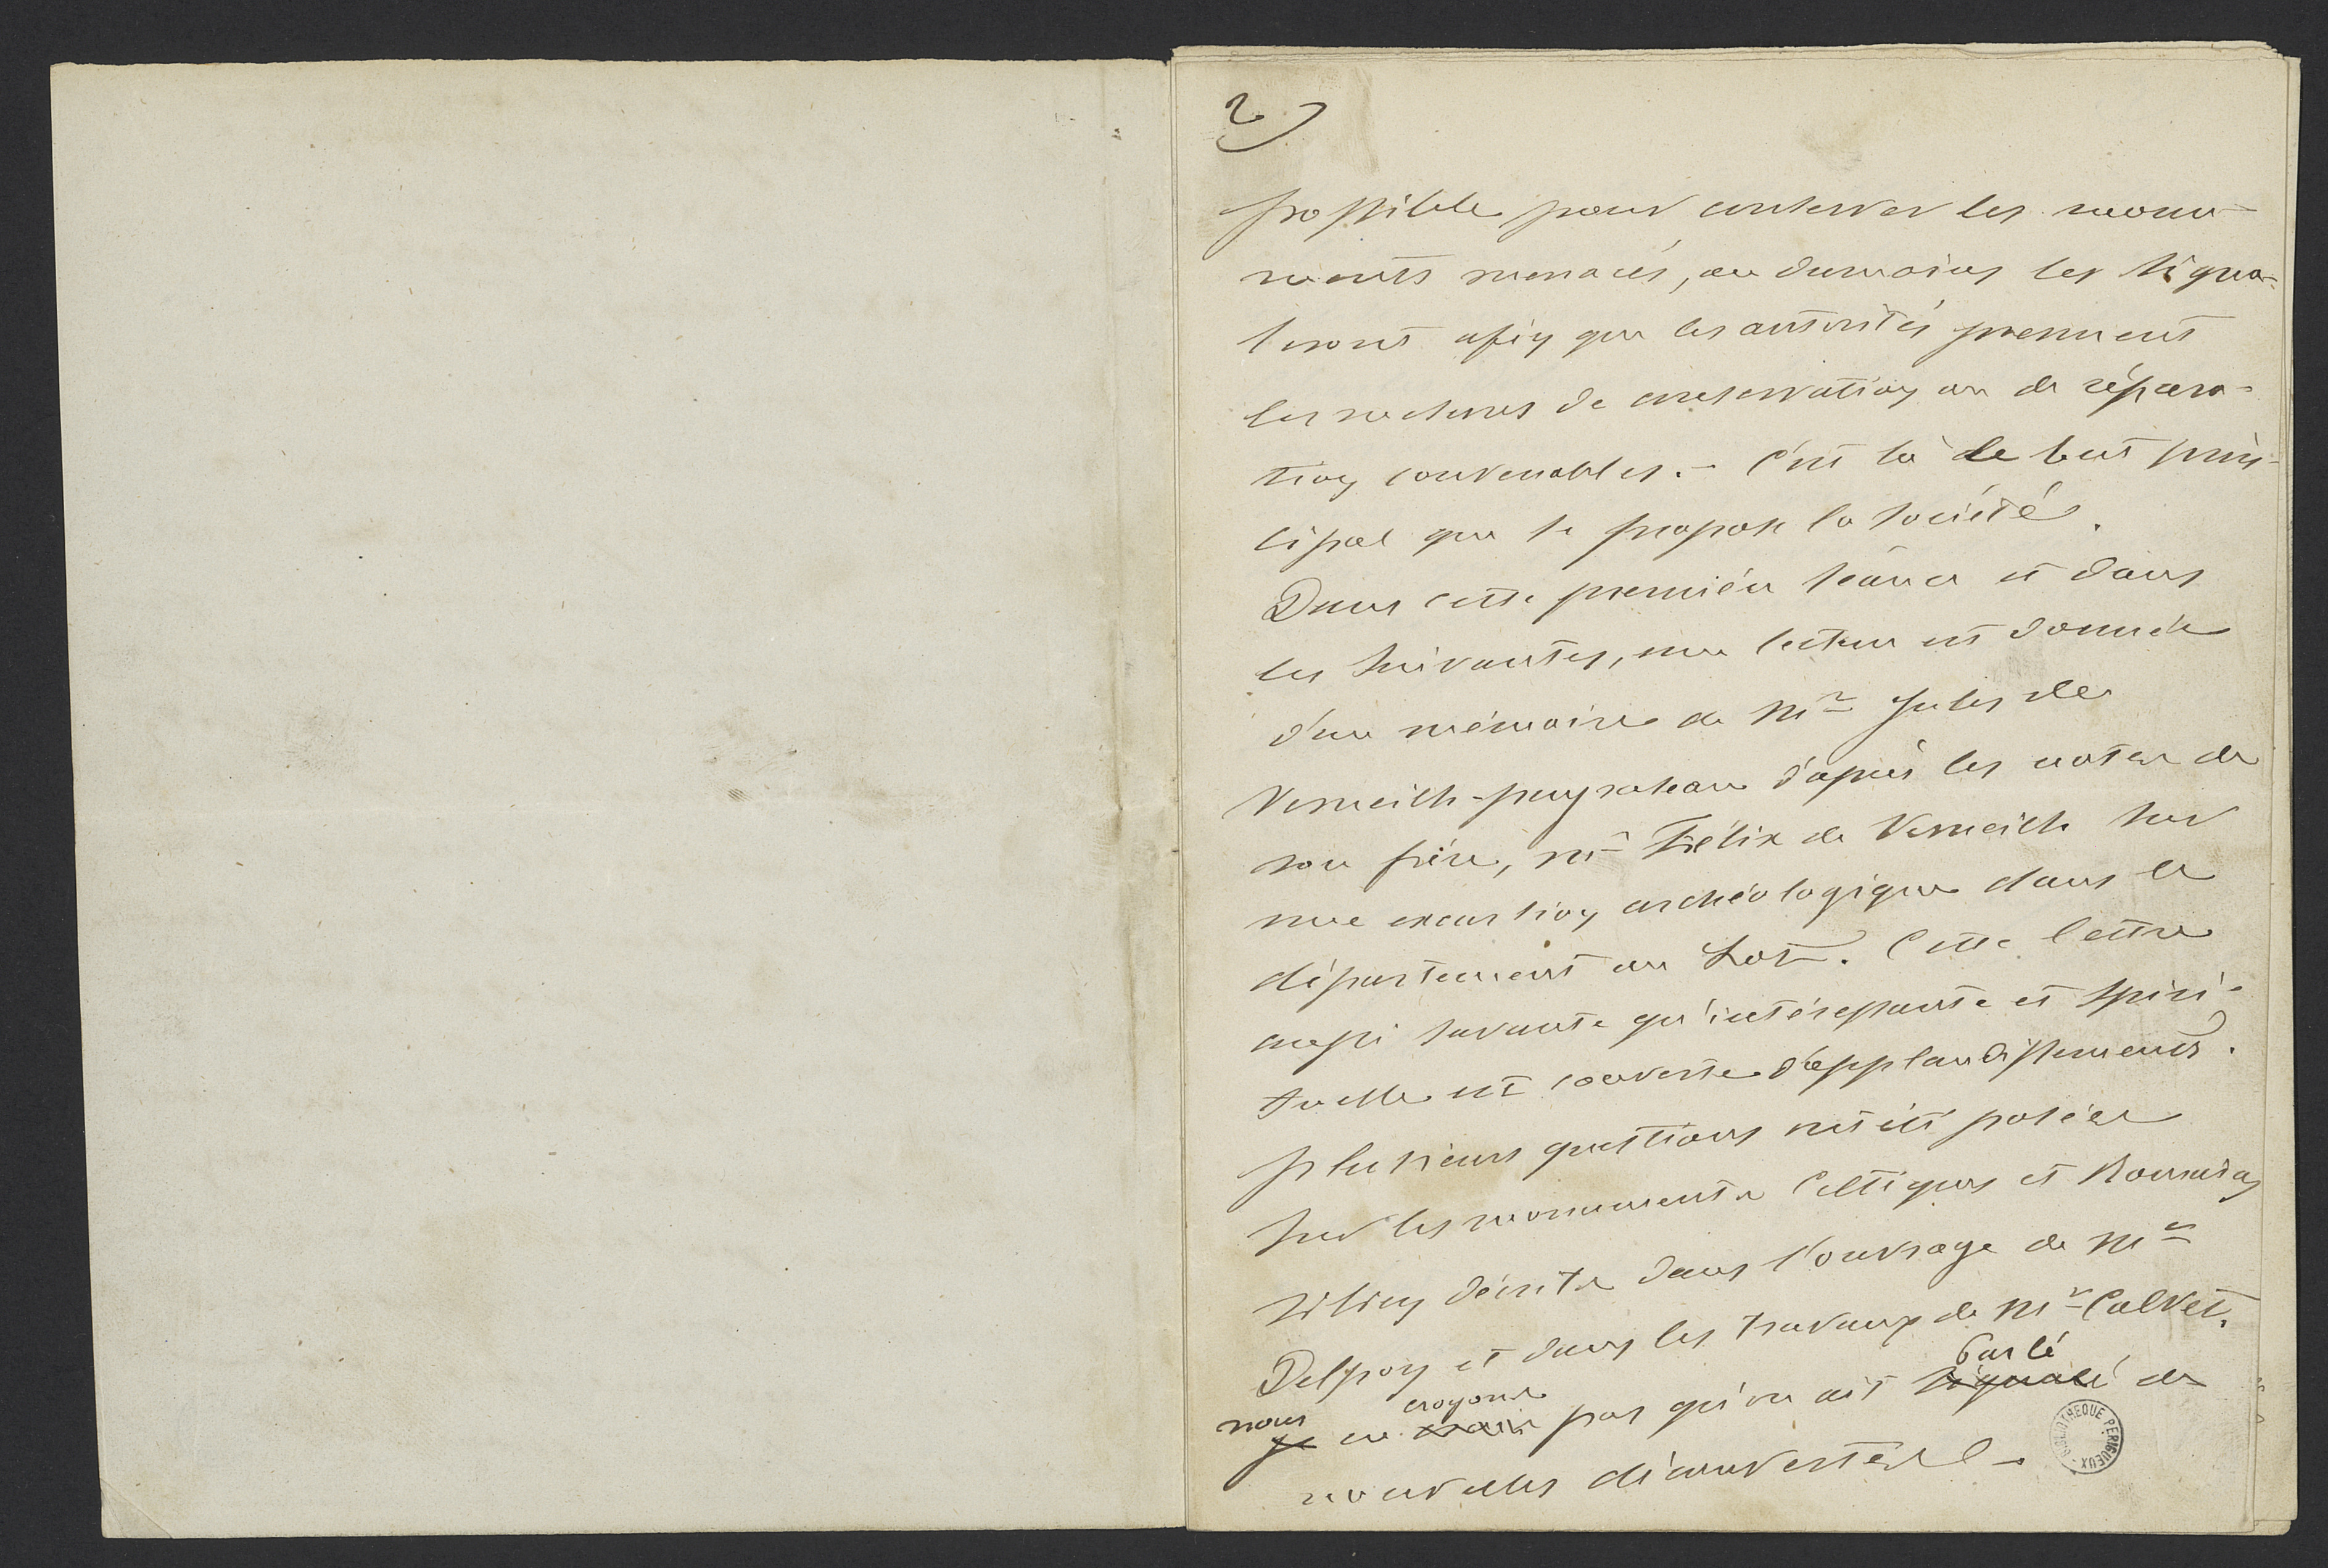 2)
possible pour conserver les monu-
ments menacés, ou dumoins les signa-
leront afin que les autorités prennent
les mesures de conservation ou de répara-
tion convenables. - C'est là le but prin-
cipal que se propose la société.
Dans cette première séance et dans
les suivantes, une lecture est donnée
d'un mémoire de Mr Jules de
Verneilh-puyraseau d'après les notes de
son frère, Mr Félix de Verneilh sur
une excursion archéologique dans le
département du Lot. Cette lettre
aussi savante qu'intéressante et spiri-
tuelle est couverte d'applaudissements.
plusieurs questions ont été posées
sur les monuments Celtiques et Romains
décrits dans l'ouvrage de Mr
Delpon et dans les travaux de Mr Calvet.
parlé
nous croyons
je ne crois pas qu'on ait signalé de
nouvelles découvertes
BIBLIOTHEQUE PERIGUEUX